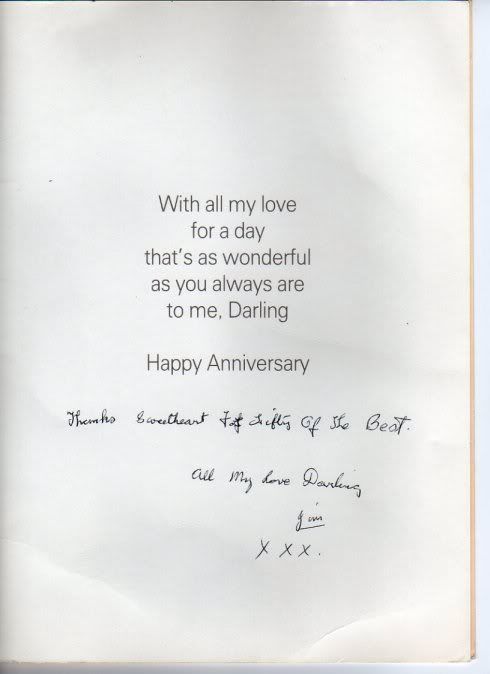 With all my love
for a day
that's as wonderful
as you always are
to me, Darling
Happy Anniversary
Thanks Sweetheart For Fifty Of The Best.
All My Love Darling
Jim
X X X.